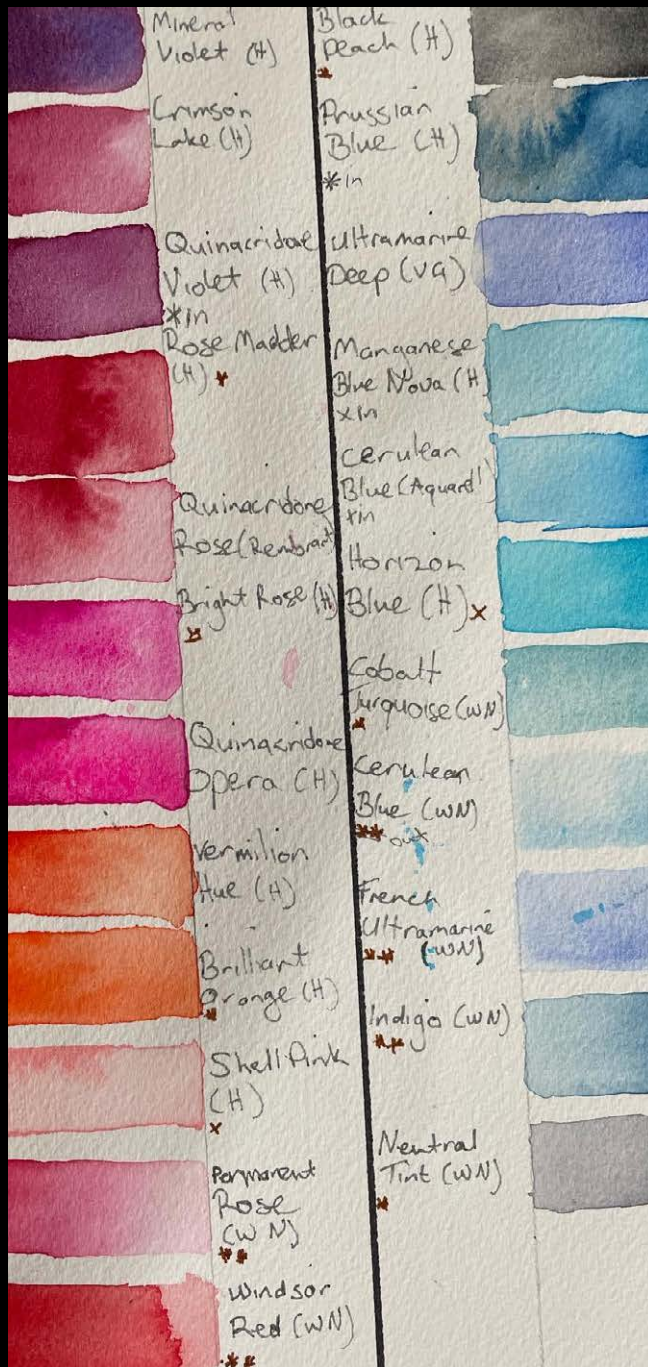 Mineral
Violet (H)
Crimson
Lake (H)
Quinacridone
Violet (H)
*in
Rose Madder
(H) *
Quinacridone
Rose (Rembrant)
Bright Rose (H)
*
Quinacridone
Opera (H)
Vermilion
Hue (H)
Brilliant
Orange (H)
*
Shell Pink
(H)
*
Permanent
Rose
(WN)
**
Windsor
Red (WN)
**
Black
Peach (H)
*
Prussian
Blue (H)
*in
Ultramarine
Deep (VG)
Manganese
Blue Nova (H)
*in
Cerulean
Blue (Aquarel)
*in
Horizon
Blue (H) *
Cobalt
Turquoise (WN)
*
Cerulean
Blue (WN)
** out
French
Ultramarine
** (WN)
Indigo (WN)
**
Neutral
Tint (WN)
*